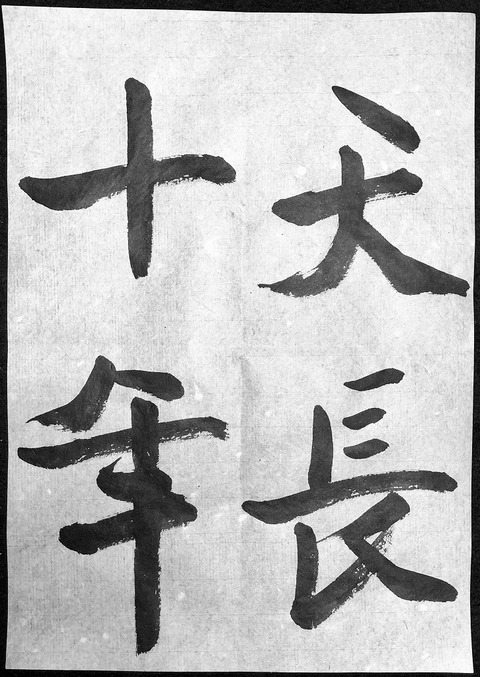 天長
十年